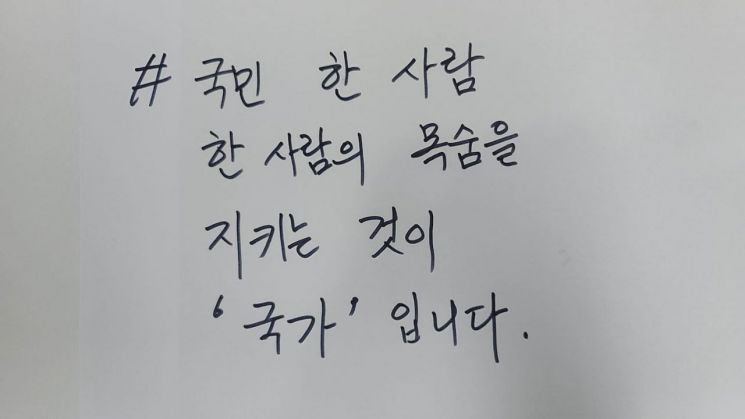 # 국민 한 사람
한 사람의 목숨을
지키는 것이
‘국가’입니다.